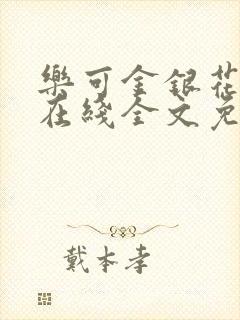 樂可金銀花
在綫全文免
戴本孝